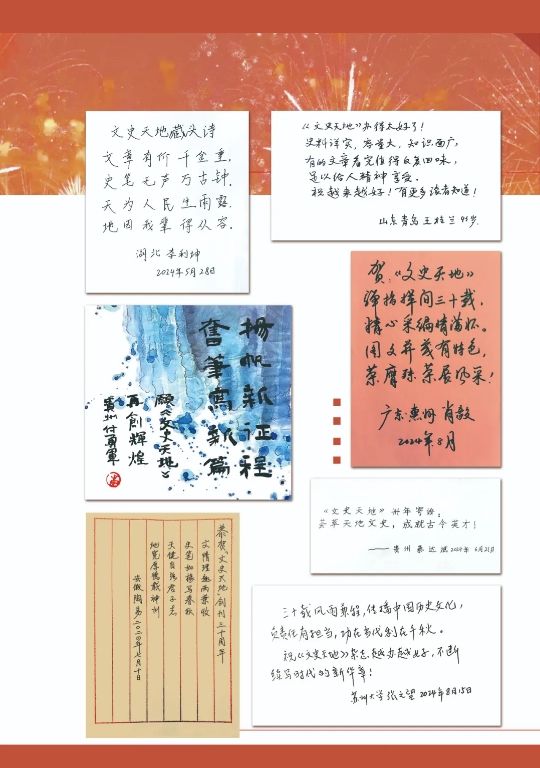 文史天地藏头诗
文章有价千金重，
史笔无声万古钟，
天为人民生雨露，
地因我辈得从容。
湖北 李利坤
2024年5月28日
《文史天地》办得太好了！
史料详实，容量大，知识面广，
有的文章看完值得反复回味，
足以给人精神享受。
祝越来越好！有更多读者知道！
山东青岛 王桂兰 95岁
贺《文史天地》
弹指挥间三十载，
精心采编情满怀。
图文并茂有特色，
荣膺殊荣展风采！
广东惠州 肖毅
2024年8月
扬帆新征程
奋笔写新篇
愿《文史天地》
再创辉煌
贵州付勇军
《文史天地》卅年寄语：
荟萃天地文史，成就古今英才！
——贵州 秦远斌 2024年 6月21日
恭贺《文史天地》创刊三十周年
文情理趣两兼收
史笔如椽写春秋
天健自强君子志
地宽厚德载神州
安徽陶易二〇二四年七月十日
三十载风雨兼程，传播中国历史文化，
负责任有担当，功在当代利在千秋。
祝《文史天地》杂志越办越好，不断
续写时代的新华章！
苏州大学 张文望 2024年8月15日